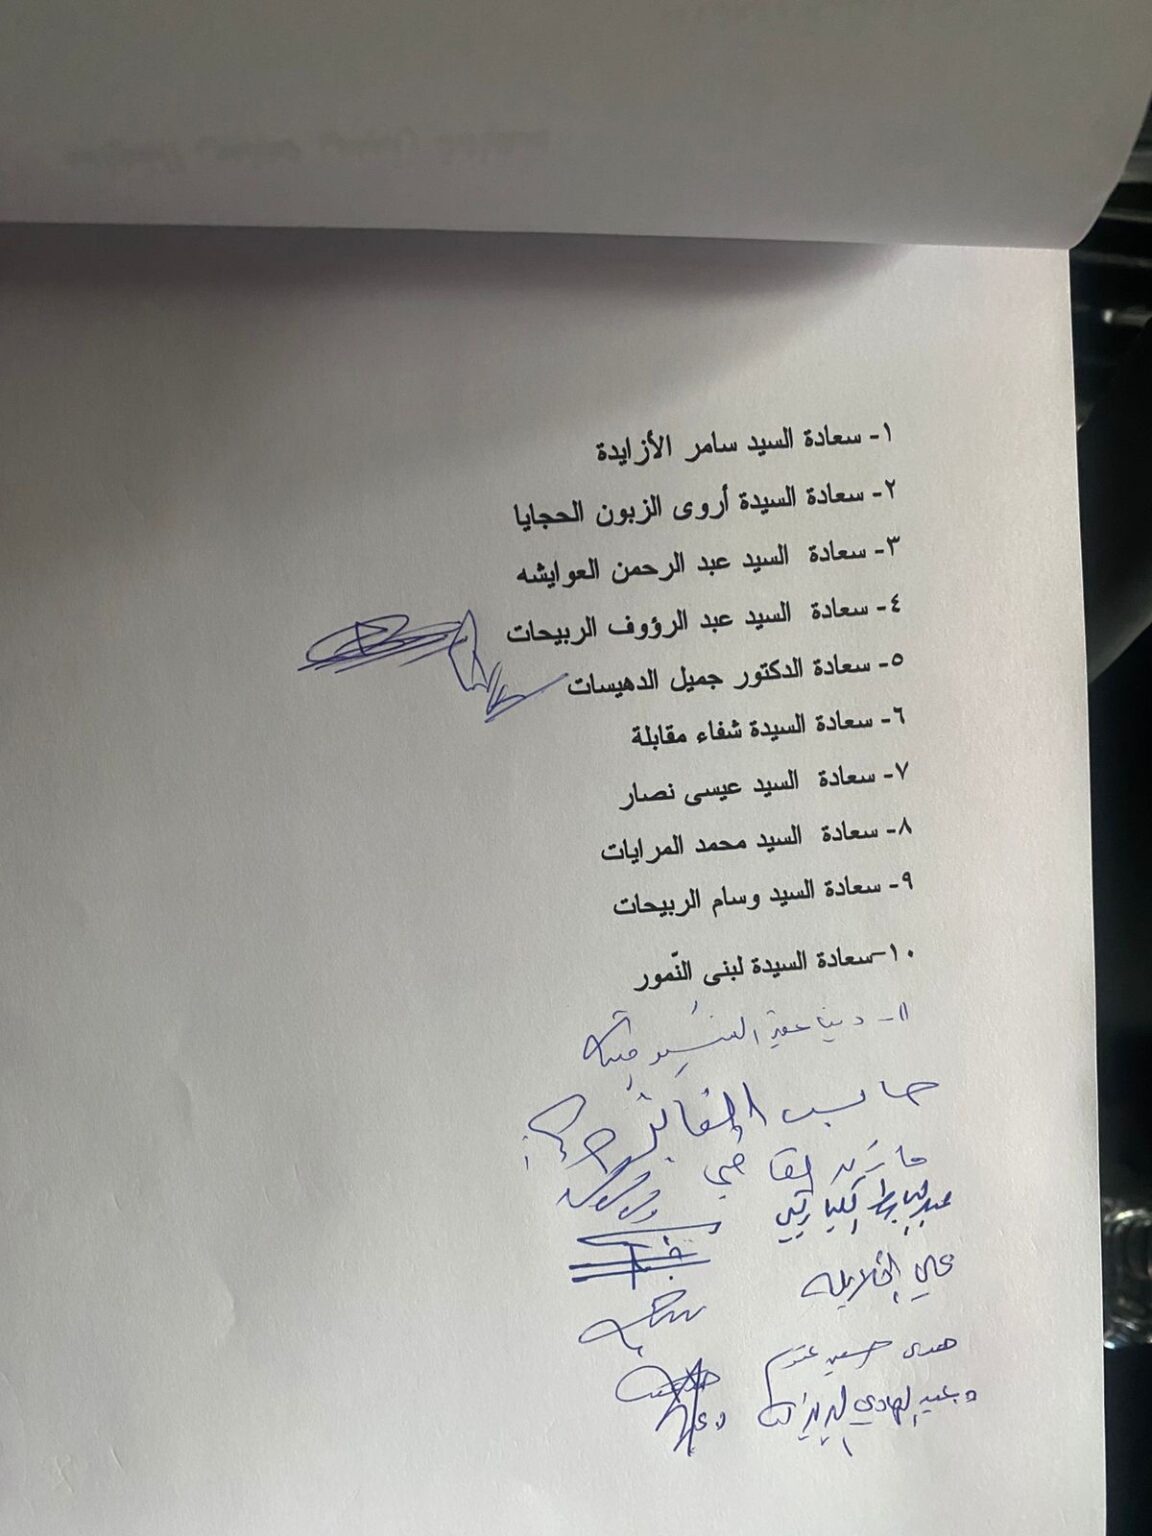 ١- سعادة السيد سامر الأزايدة
٢- سعادة السيدة أروى الزبون الحجايا
٣- سعادة السيد عبد الرحمن العوايشه
٤- سعادة السيد عبد الرؤوف الربيحات
٥- سعادة الدكتور جميل الدهيسات
٦- سعادة السيدة شفاء مقابلة
٧- سعادة السيد عيسى نصار
٨- سعادة السيد محمد المرايات
٩- سعادة السيد وسام الربيحات
١٠- سعادة السيدة لبنى النّمور
١١- دينا
القاضي
عبدالباسط الكباريتي
علي الخلايله
هدى حسين عتوم
د. عبد الهادي